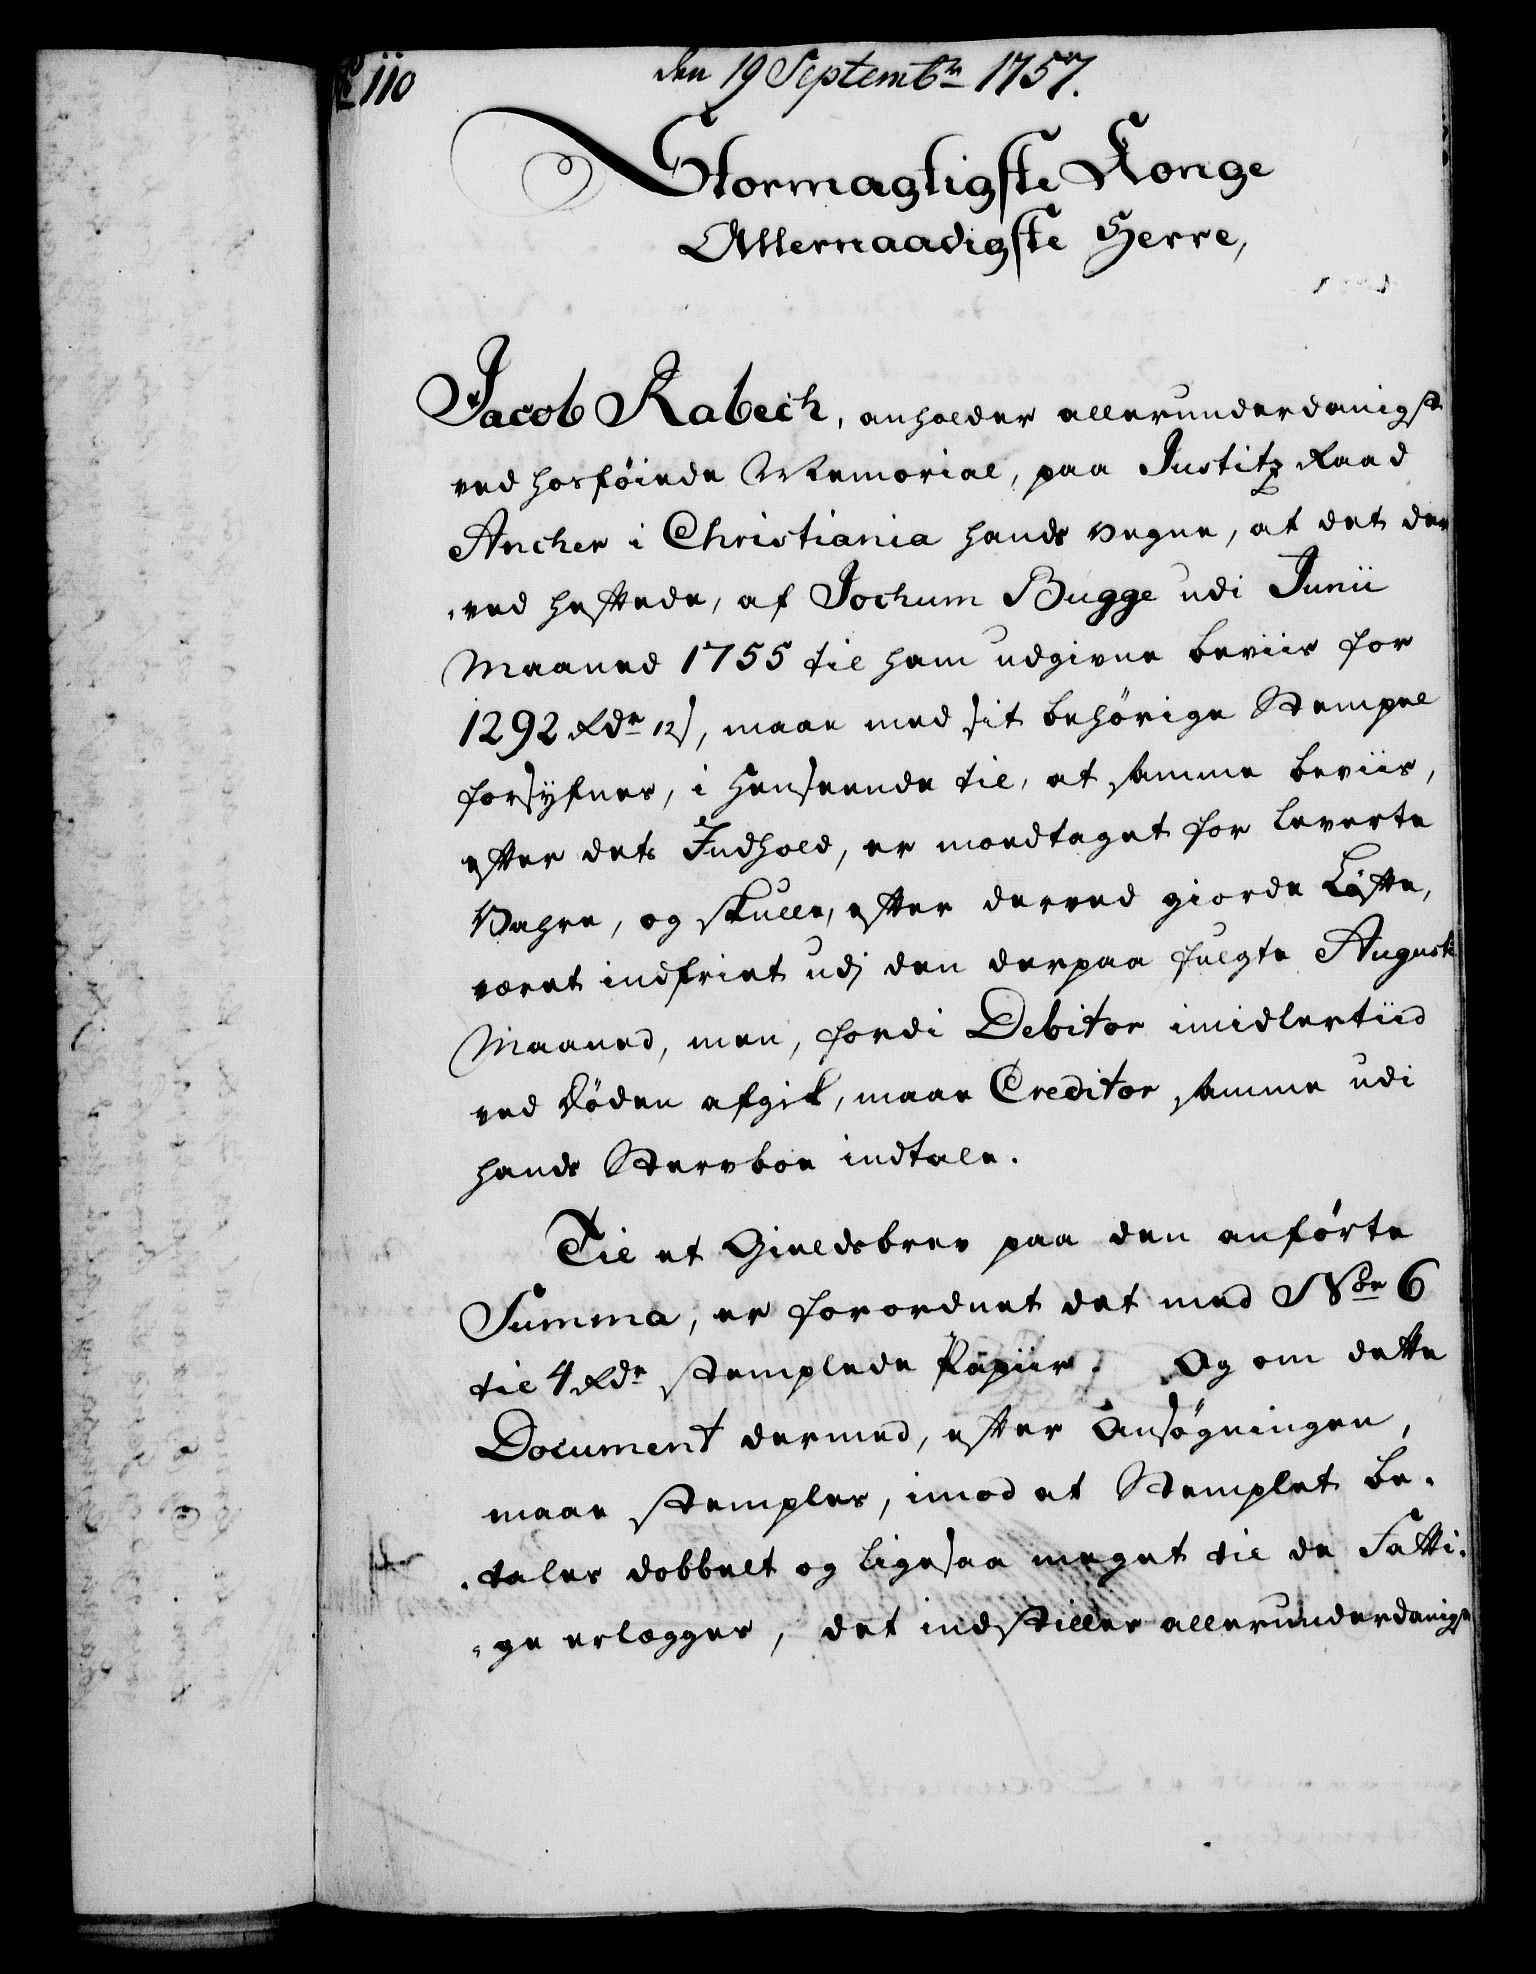 110
den 19 Septembr 1757.
Stormagtigste Konge
Allernaadigste Herre,
Jacob Rabech, anholder allerunderdanigst
ved hosföiede Memorial, paa Justitz Raad
Ancher i Christiania hands vegne, at det der
„ved heftede, af Jochum Bugge udi Junii
Maaned 1755 til ham udgivne beviis for
1292 Rdr 12 s, maae med sit behörige Stempel
forsÿfnes, i Henseende til, at samme beviis,
efter dets Indhold, er modtaget for leverte
Vahre, og skulle, efter derved giorde Löfte,
været indfriet udj den derpaa fulgte Augusti
Maaned, men, fordi Debitor imidlertiid
ved Döden afgik, maae Creditor samme udi
hands Stervboe indtale.
Til et Gieldsbrev paa den anförte
Summa, er forordnet det med Nor 6
til 4 Rdr stemplede Papiir. Og om dette
Document dermed, efter Ansögningen,
maae stemples, imod at Stemplet be„
„tales dobbelt og ligesaa meget til de Fatti„
„ge erlegges, det indstilles allerunderdanigst